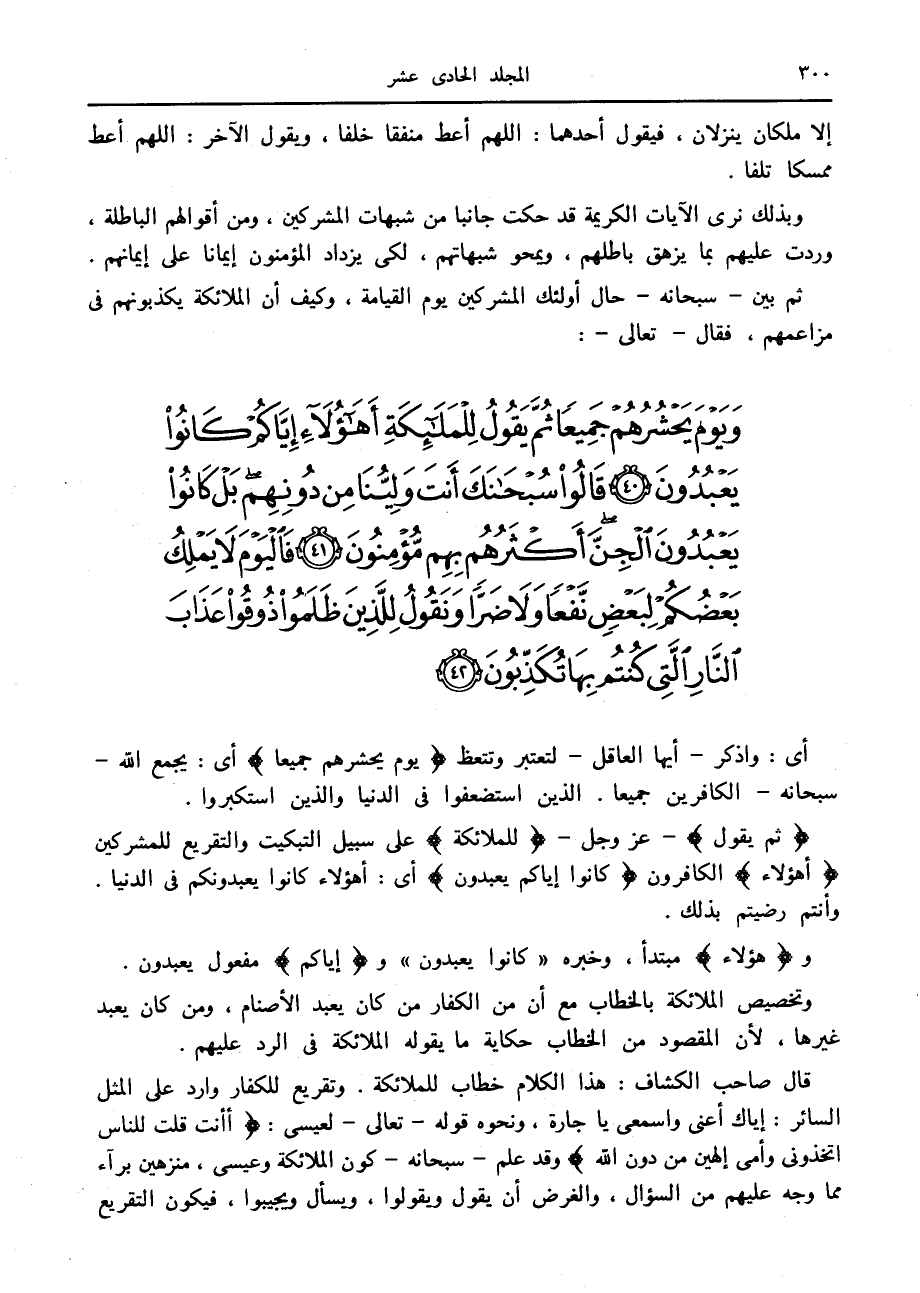 ٣٠٠ المجلد الحادى عشر
إلا ملكان ينزلان ، فيقول أحدهما : اللهم أعط منفقا خلفا ، ويقول الآخر : اللهم أعط
ممسكا تلفا .
وبذلك نرى الآيات الكريمة قد حكت جانبا من شبهات المشركين ، ومن أقوالهم الباطلة ،
وردت عليهم بما يزهق باطلهم ، ويمحو شبهاتهم ، لكى يزداد المؤمنون إيمانا على إيمانهم .
ثم بين – سبحانه – حال أولئك المشركين يوم القيامة ، وكيف أن الملائكة يكذبونهم فى
مزاعمهم ، فقال – تعالى – :
وَيَوْمَ يَحْشُرُهُمْ جَمِيعًا ثُمَّ يَقُولُ لِلْمَلَٰٓئِكَةِ أَهَٰٓؤُلَآءِ إِيَّاكُمْ كَانُوا۟
يَعْبُدُونَ ﴿٤٠﴾ قَالُوا۟ سُبْحَٰنَكَ أَنتَ وَلِيُّنَا مِن دُونِهِم ۖ بَلْ كَانُوا۟
يَعْبُدُونَ ٱلْجِنَّ ۖ أَكْثَرُهُم بِهِم مُّؤْمِنُونَ ﴿٤١﴾ فَٱلْيَوْمَ لَا يَمْلِكُ
بَعْضُكُمْ لِبَعْضٍ نَّفْعًا وَلَا ضَرًّا وَنَقُولُ لِلَّذِينَ ظَلَمُوا۟ ذُوقُوا۟ عَذَابَ
ٱلنَّارِ ٱلَّتِى كُنتُم بِهَا تُكَذِّبُونَ ﴿٤٢﴾
أى : واذكر – أيها العاقل – لتعتبر وتتعظ ﴿ يوم يحشرهم جميعا ﴾ أى : يجمع الله –
سبحانه – الكافرين جميعا . الذين استضعفوا فى الدنيا والذين استكبروا .
﴿ ثم يقول ﴾ – عز وجل – ﴿ للملائكة ﴾ على سبيل التبكيت والتقريع للمشركين
﴿ أهؤلاء ﴾ الكافرون ﴿ كانوا إياكم يعبدون ﴾ أى : أهؤلاء كانوا يعبدونكم فى الدنيا .
وأنتم رضيتم بذلك .
و ﴿ هؤلاء ﴾ مبتدأ ، وخبره « كانوا يعبدون » و ﴿ إياكم ﴾ مفعول يعبدون .
وتخصيص الملائكة بالخطاب مع أن من الكفار من كان يعبد الأصنام ، ومن كان يعبد
غيرها ، لأن المقصود من الخطاب حكاية ما يقوله الملائكة فى الرد عليهم .
قال صاحب الكشاف : هذا الكلام خطاب للملائكة . وتقريع للكفار وارد على المثل
السائر : إياك أعنى واسمعى يا جارة ، ونحوه قوله – تعالى – لعيسى : ﴿ أأنت قلت للناس
اتخذونى وأمى إلهين من دون الله ﴾ وقد علم – سبحانه – كون الملائكة وعيسى ، منزهين برآء
مما وجه عليهم من السؤال ، والغرض أن يقول ويقولوا ، ويسأل ويجيبوا ، فيكون التقريع